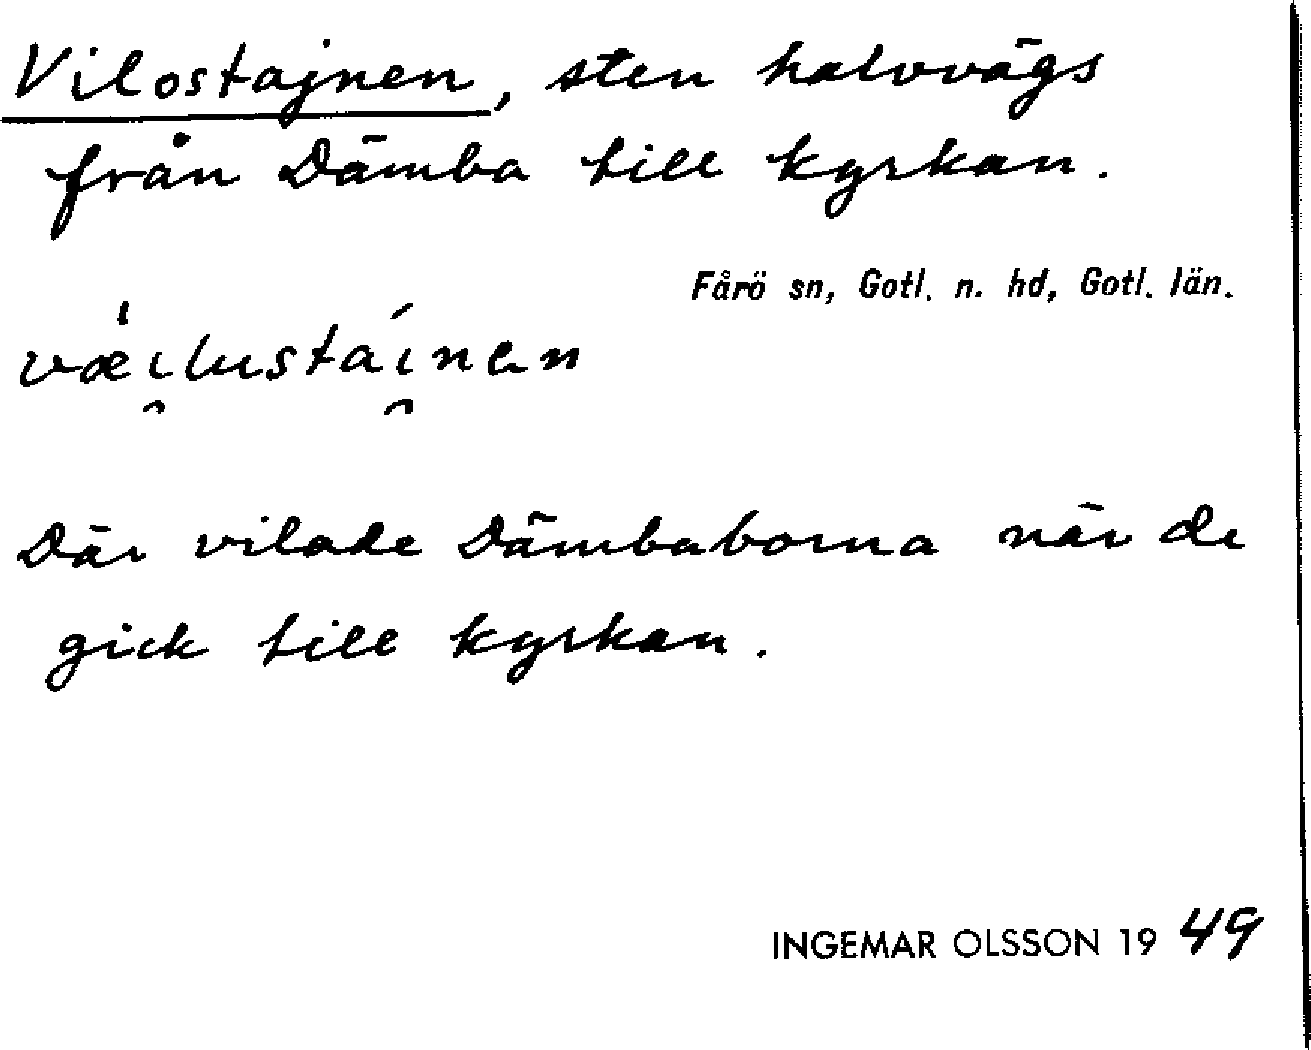 Vilostajnen, sten halvvägs
från Dämba till kyrkan.
Fårö sn, Gotl. n. hd, Gotl. län.
væ̍i̯lustái̯nen
Där vilade Dämbaborna när de
gick till kyrkan.
INGEMAR OLSSON 1949